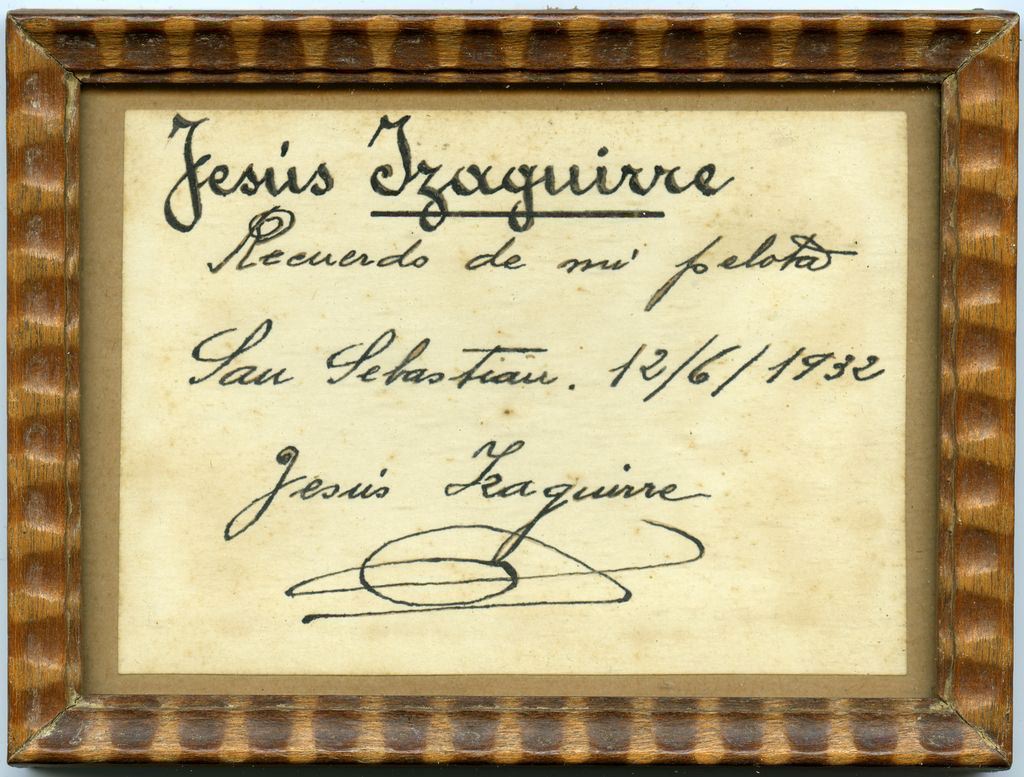 Jesús Izaguirre
Recuerdo de mi pelota
San Sebastian. 12/6/1932
Jesús Izaguirre